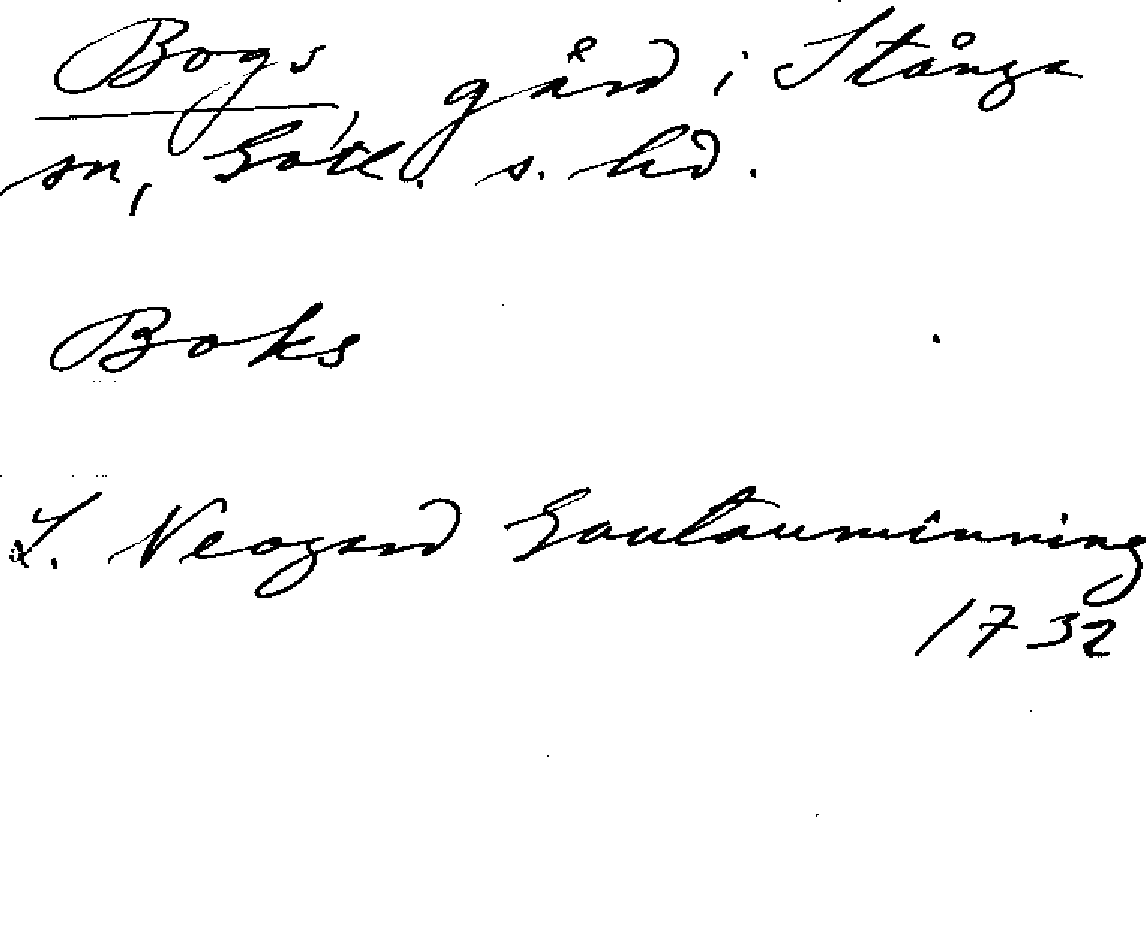 Bogs, gård i Stånga
sn, Gotl. s. hd.
Boks
L. Neogard Gautauminning
1732